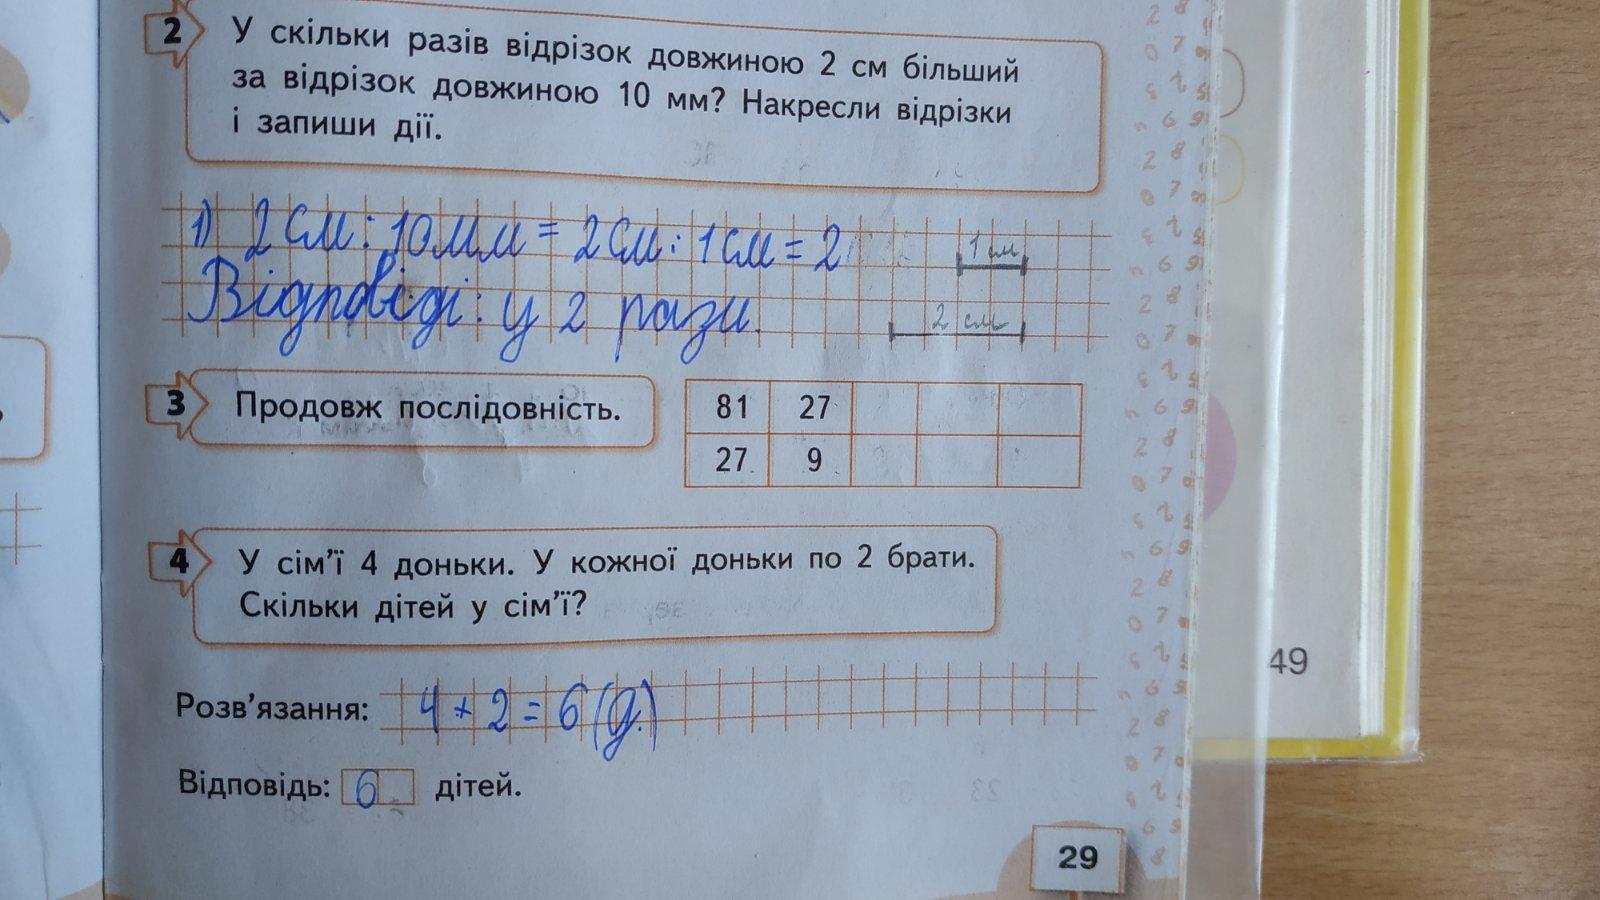 2
У скільки разів відрізок довжиною 2 см більший
за відрізок довжиною 10 мм? Накресли відрізки
і запиши дії.
1) 2 см : 10 мм = 2 см : 1 см = 2
1 см
Відповіді: у 2 рази.
2 см
3 Продовж послідовність.
81 27
27 9
4
У сім’ї 4 доньки. У кожної доньки по 2 брати.
Скільки дітей у сім’ї?
49
Розв’язання: 4 + 2 = 6 (д.)
Відповідь: 6 дітей.
29